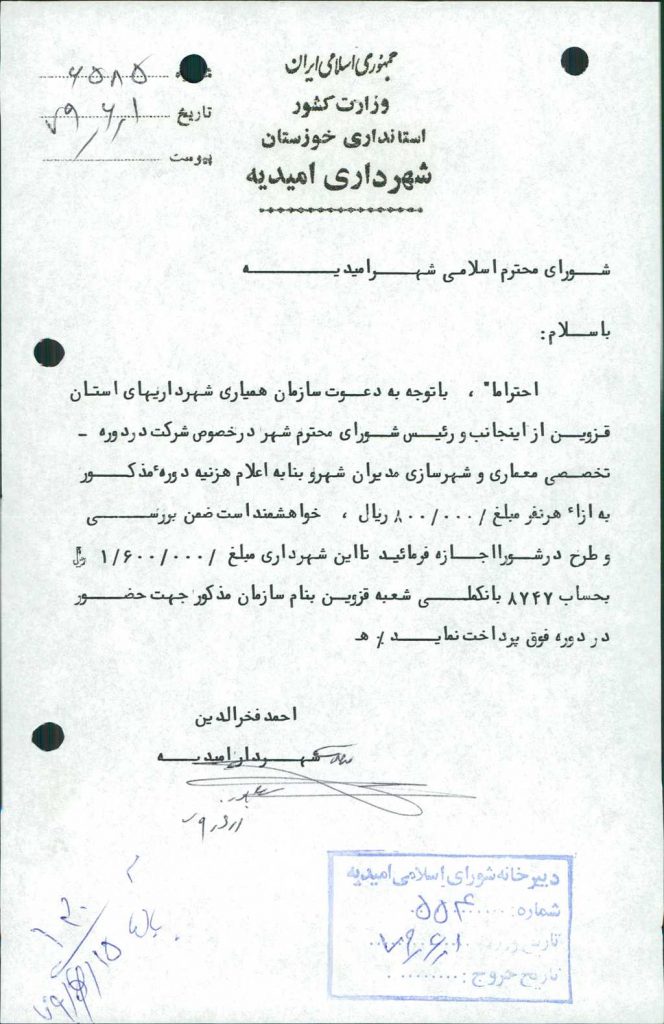 جمهوری اسلامی ایران
وزارت کشور
استانداری خوزستان
شهرداری امیدیه
۶۵۸۵
تاریخ ۷۹/۶/۱
پیوست
شورای محترم اسلامی شهر امیدیه
باسلام:
احتراما" ، باتوجه به دعوت سازمان همیاری شهرداریهای استان
قزوین از اینجانب و رئیس شورای محترم شهر درخصوص شرکت دردوره -
تخصصی معماری و شهرسازی مدیران شهرو بنابه اعلام هزنیه دورهٔ مذکور
به ازاء هرنفر مبلغ /۸۰۰/۰۰۰ ریال ، خواهشمنداست ضمن بورسی
و طرح درشورااجازه فرمائید تااین شهرداری مبلغ /۱/۶۰۰/۰۰۰ ریال
بحساب ۸۷۴۷ بانکملی شعبه قزوین بنام سازمان مذکور جهت حضور
در دوره فوق پرداخت نماید / هـ
احمد فخرالدین
شهردار امیدیه
دبیرخانه شورای اسلامی امیدیه
شماره: ۵۵۴
تاریخ ورود: ۷۹/۶/۱
تاریخ خروج: